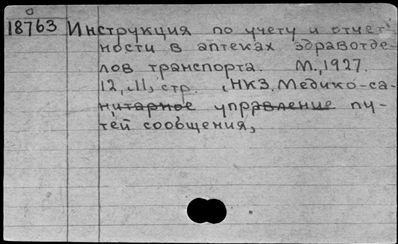 18763 Инструкция по учету и отчет
ности в аптеках здравотде-
лов транспорта. М., 1927.
12, /1/, стр. (НКЗ. Медико-са-
нитарное управление пу-
тей сообщения,